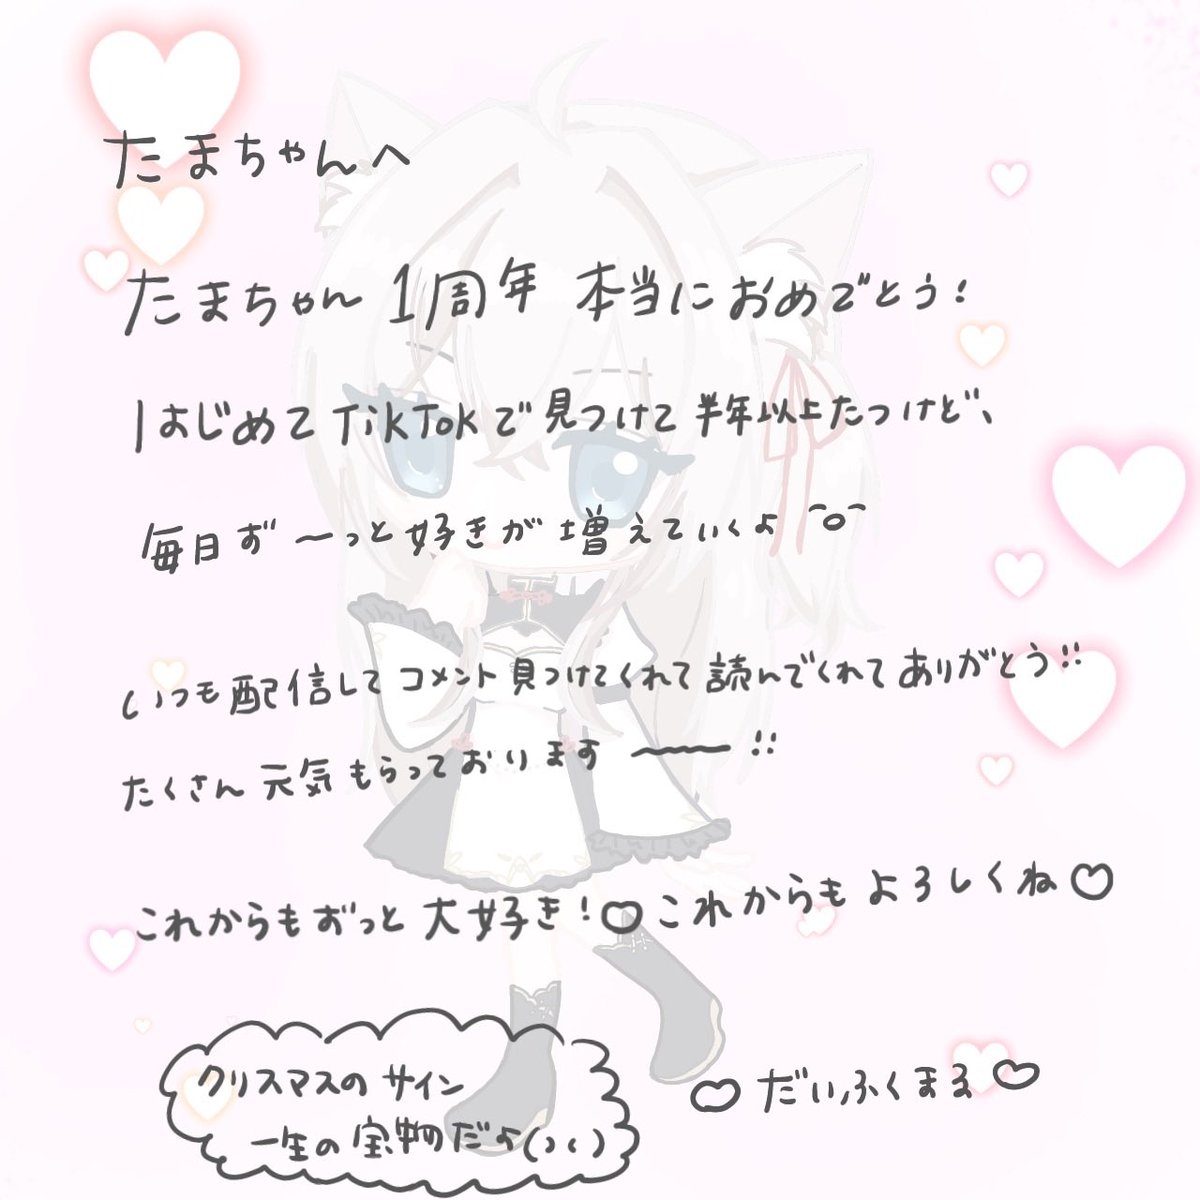 たまちゃんへ
たまちゃん 1周年 本当におめでとう!
はじめてTikTokで見つけて半年以上たつけど、
毎日ず〜っと好きが増えていくよ ^o^
いつも配信してコメント見つけてくれて読んでくれてありがとう!!
たくさん元気もらっております〜!!
これからもずっと大好き!♡これからもよろしくね♡
クリスマスのサイン
一生の宝物だよ(><)
♡だいふくまる♡